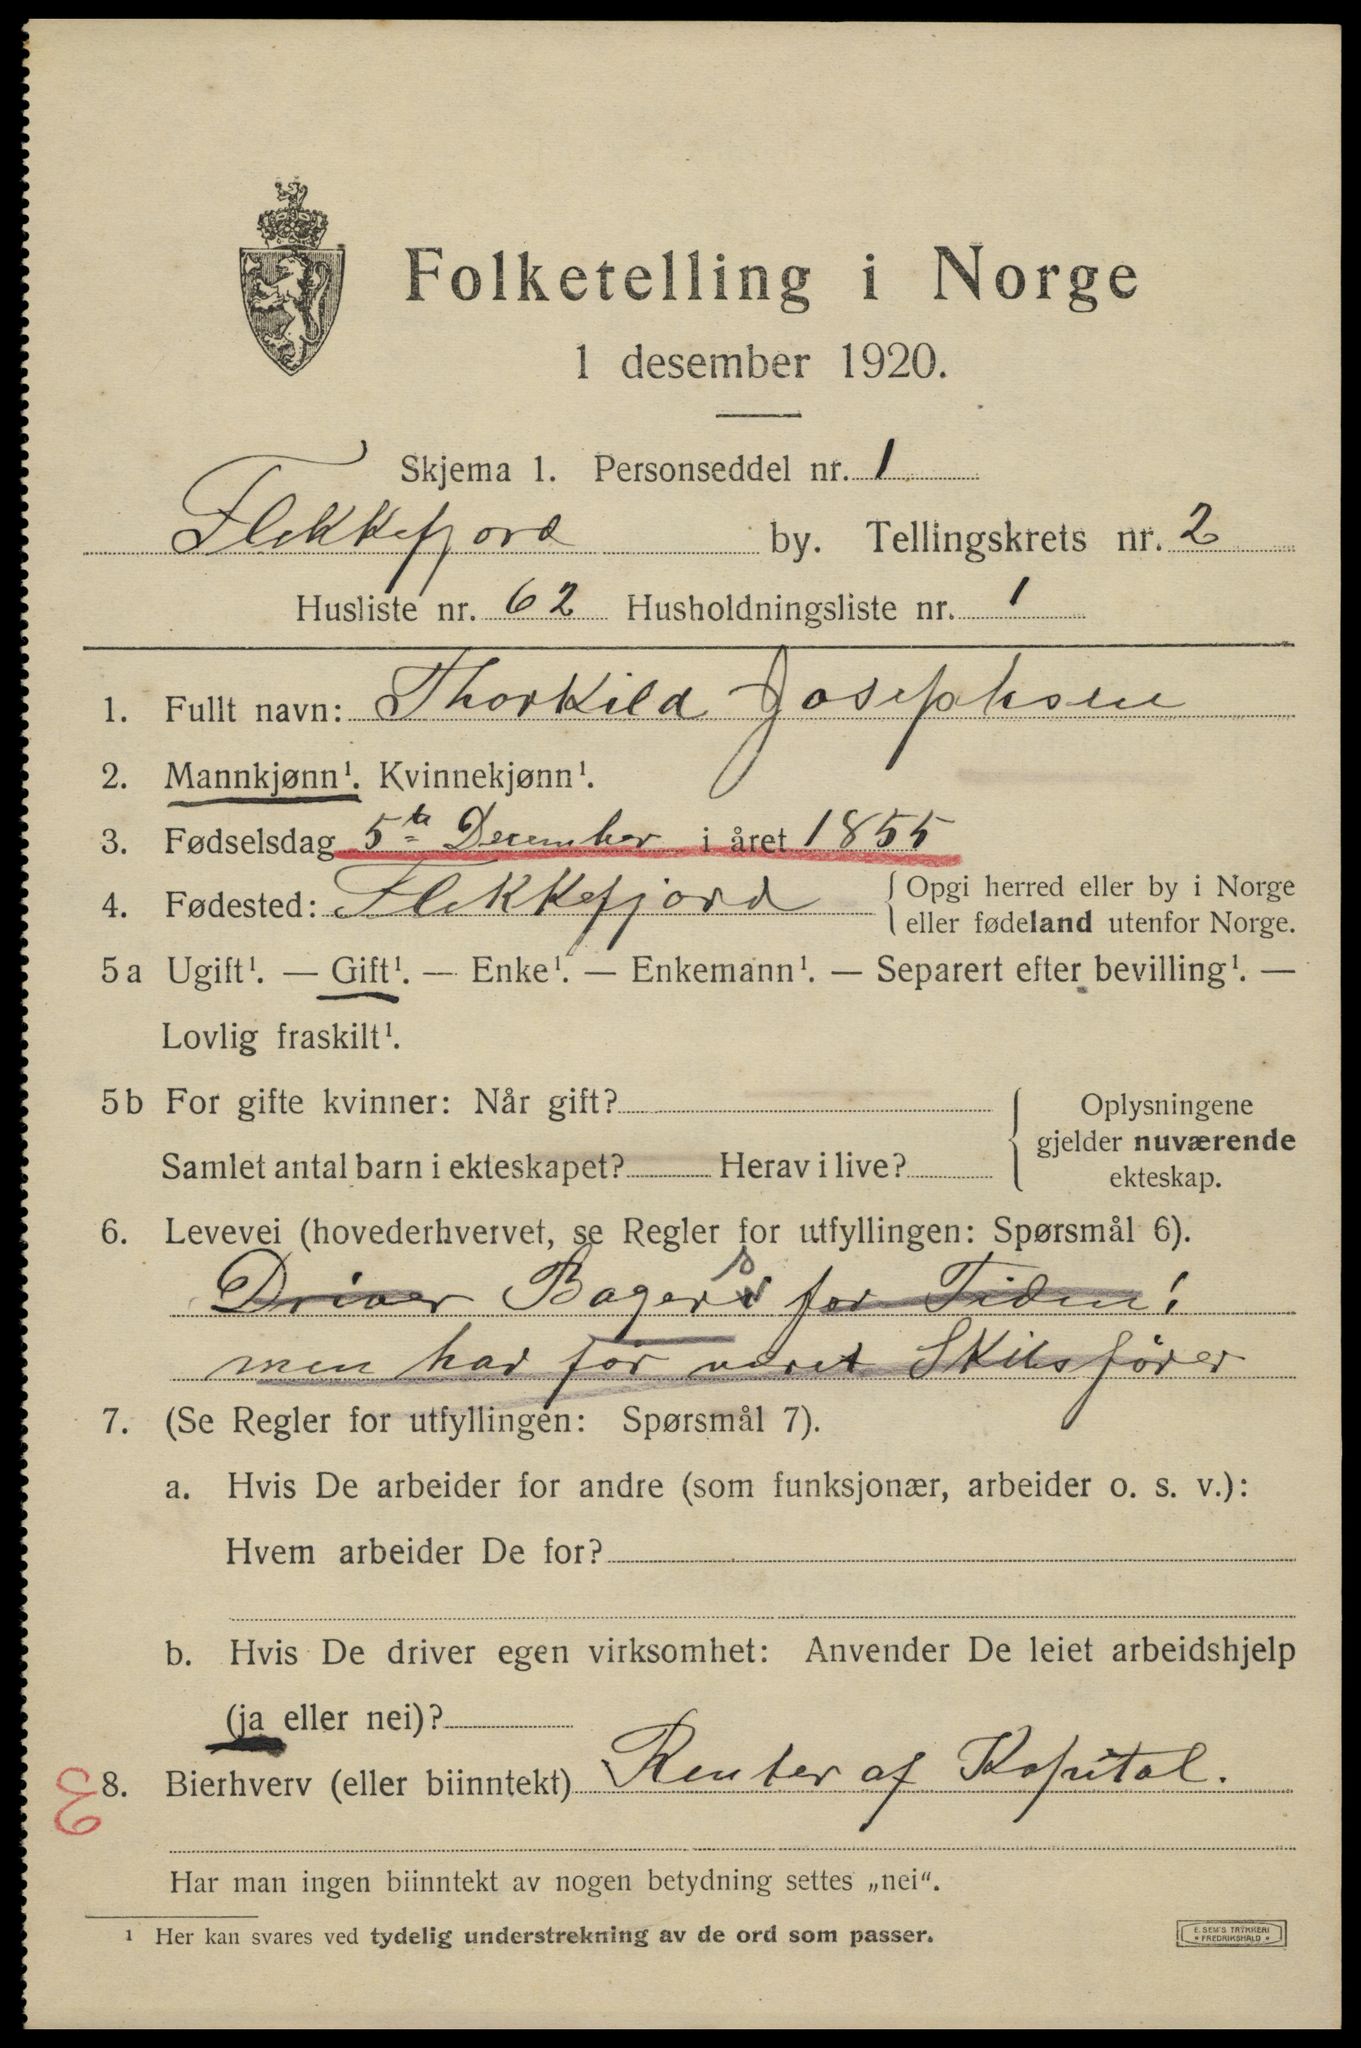 Folketelling i Norge
1 desember 1920.
Skjema 1. Personseddel nr. 1
Flekkefjord by. Tellingskrets nr. 2
Husliste nr. 62 Husholdningsliste nr. 1
1. Fullt navn: Thorkild Josephsen
2. Mannkjønn¹. Kvinnekjønn¹.
3. Fødselsdag 5te December i året 1855
4. Fødested: Flekkefjord {Opgi herred eller by i Norge
eller fødeland utenfor Norge.
5a Ugift¹. — Gift¹. — Enke¹. — Enkemann¹. — Separert efter bevilling¹. —
Lovlig fraskilt¹.
5b For gifte kvinner: Når gift?
Samlet antal barn i ekteskapet? Herav i live?
{ Oplysningene
gjelder nuværende
ekteskap.
6. Levevei (hovederhvervet, se Regler for utfyllingen: Spørsmål 6).
Driver Bageri for Tiden!
men har før været Skibsfører
7. (Se Regler for utfyllingen: Spørsmål 7).
a. Hvis De arbeider for andre (som funksjonær, arbeider o. s. v.):
Hvem arbeider De for?
b. Hvis De driver egen virksomhet: Anvender De leiet arbeidshjelp
(ja eller nei)?
3
8. Bierhverv (eller biinntekt) Renter af Kapital.
Har man ingen biinntekt av nogen betydning settes „nei".
¹ Her kan svares ved tydelig understrekning av de ord som passer.
E. SEM'S TRYKKERI
* FREDRIKSHALD *